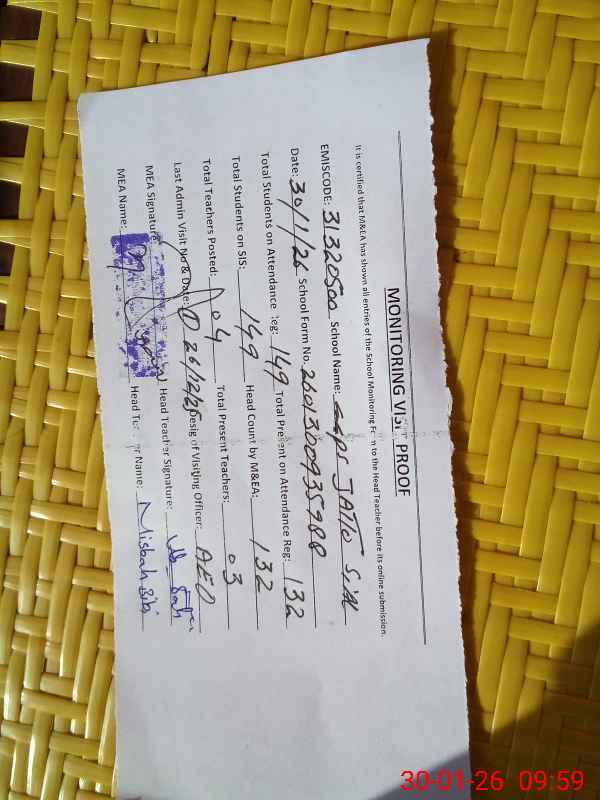 MONITORING VISIT PROOF
It is certified that M&EA has shown all entries of the School Monitoring Form to the Head Teacher before its online submission.
EMISCODE: 31320500 School Name: JATTO
Date: 30/1/26 School Form No: 2601300935988
Total Students on Attendance Reg: 149 Total Present on Attendance Reg: 132
Total Students on SIS: 149 Head Count by M&EA: 132
Total Teachers Posted: 04 Total Present Teachers: 03
Last Admin Visit No & Date: 26/12/25 Desig of Visiting Officer: AEO
MEA Signature: Head Teacher Signature:
MEA Name: Head Teacher Name: Misbah Bibi
30-01-26 09:59